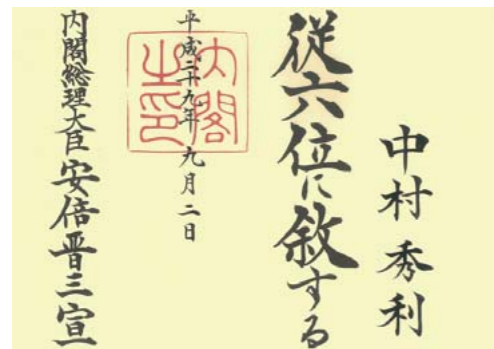 中村秀利
従六位に敘する
平成二十九年九月二日
内閣之印
内閣総理大臣安倍晋三宣